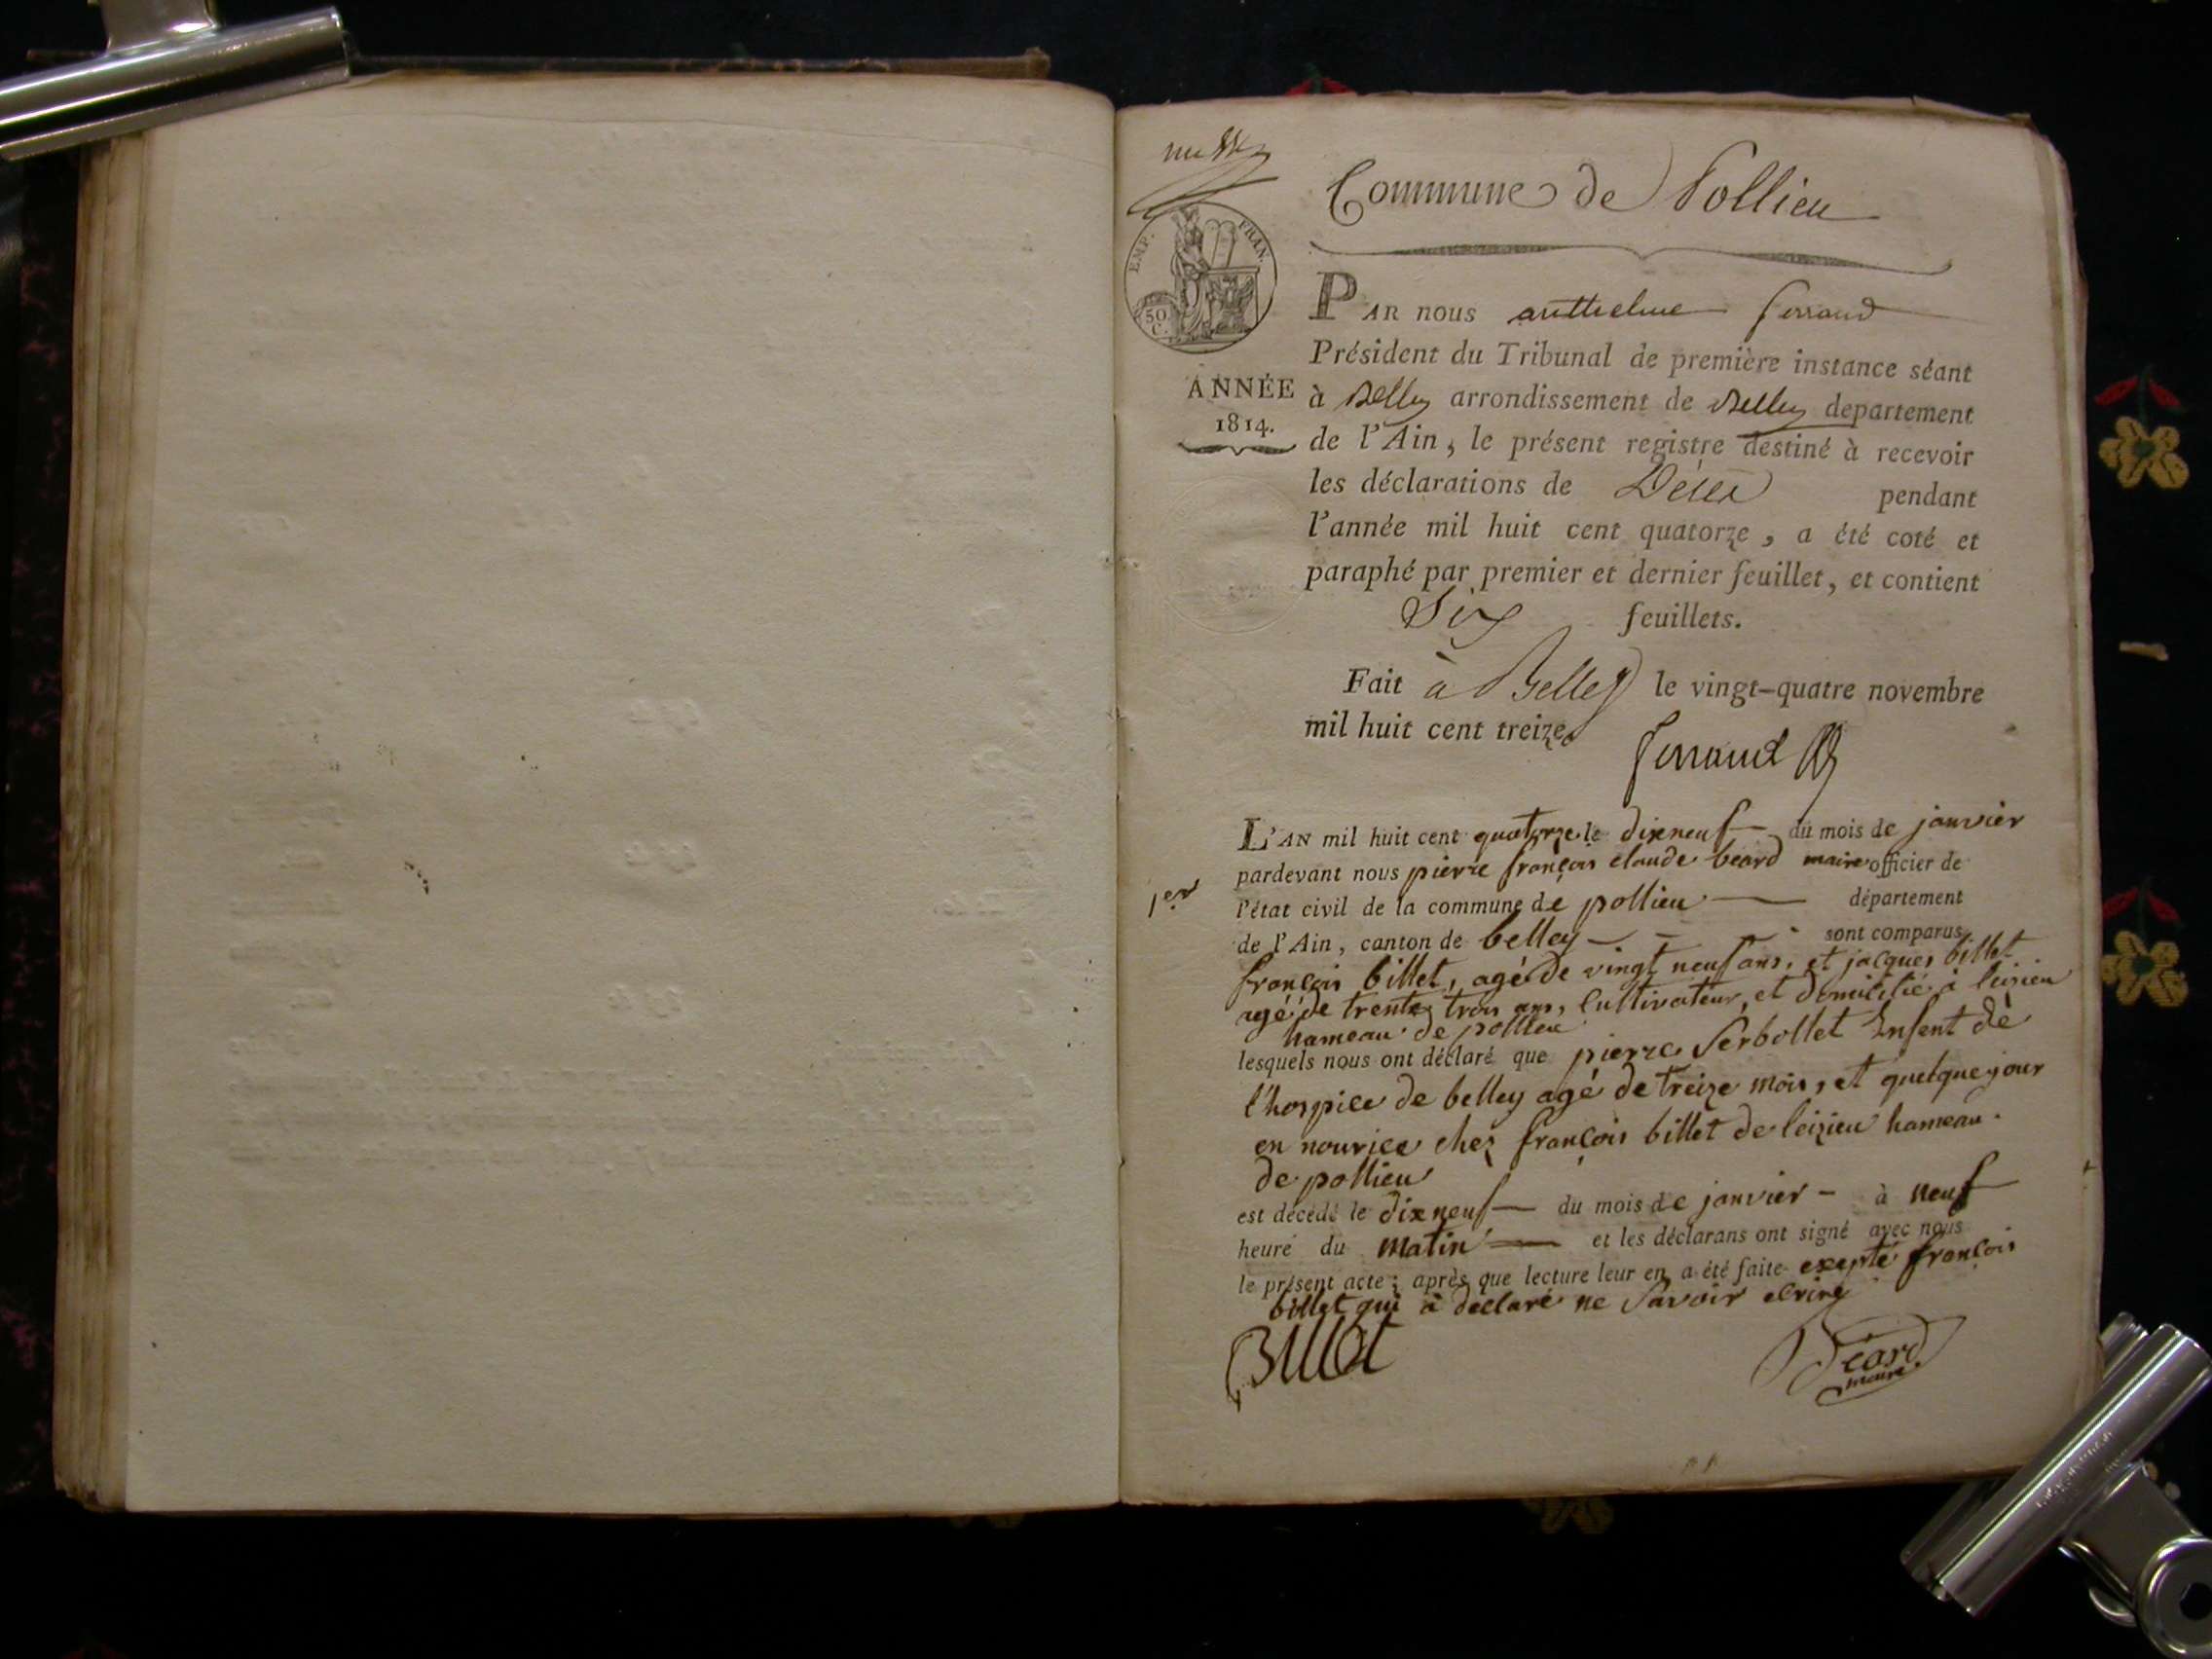 Commune de Pollieu
EMP. FRAN.
50
C.
PAR nous anthelme ferrand
Président du Tribunal de première instance séant
ANNÉE
1814.
à Belley arrondissement de Belley departement
de l'Ain, le présent registre destiné à recevoir
les déclarations de Décès pendant
l'année mil huit cent quatorze, a été coté et
paraphé par premier et dernier feuillet, et contient
Six feuillets.
Fait à Belley le vingt-quatre novembre
mil huit cent treize.
ferrand
L'AN mil huit cent quatorze le dixneuf du mois de janvier
pardevant nous pierre françois claude beard maire officier de
1er
l'état civil de la commune de pollieu département
de l'Ain, canton de belley sont comparus
françois billet, agé de vingt neuf ans, et jacques billet
agé de trente trois ans, Cultivateur, et domicilié à leizieu
hameau de pollieu
lesquels nous ont déclaré que pierre Serbollet Enfent de
l'hospice de belley agé de treize mois, et quelque jour
en nourice chez françois billet de leizieu hameau
de pollieu
est décédé le dixneuf du mois de janvier à neuf
heure du matin et les déclarans ont signé avec nous
le présent acte; après que lecture leur en a été faite exepté françois
billet qui à declaré ne Savoir ecrire
Billet
Béard
maire